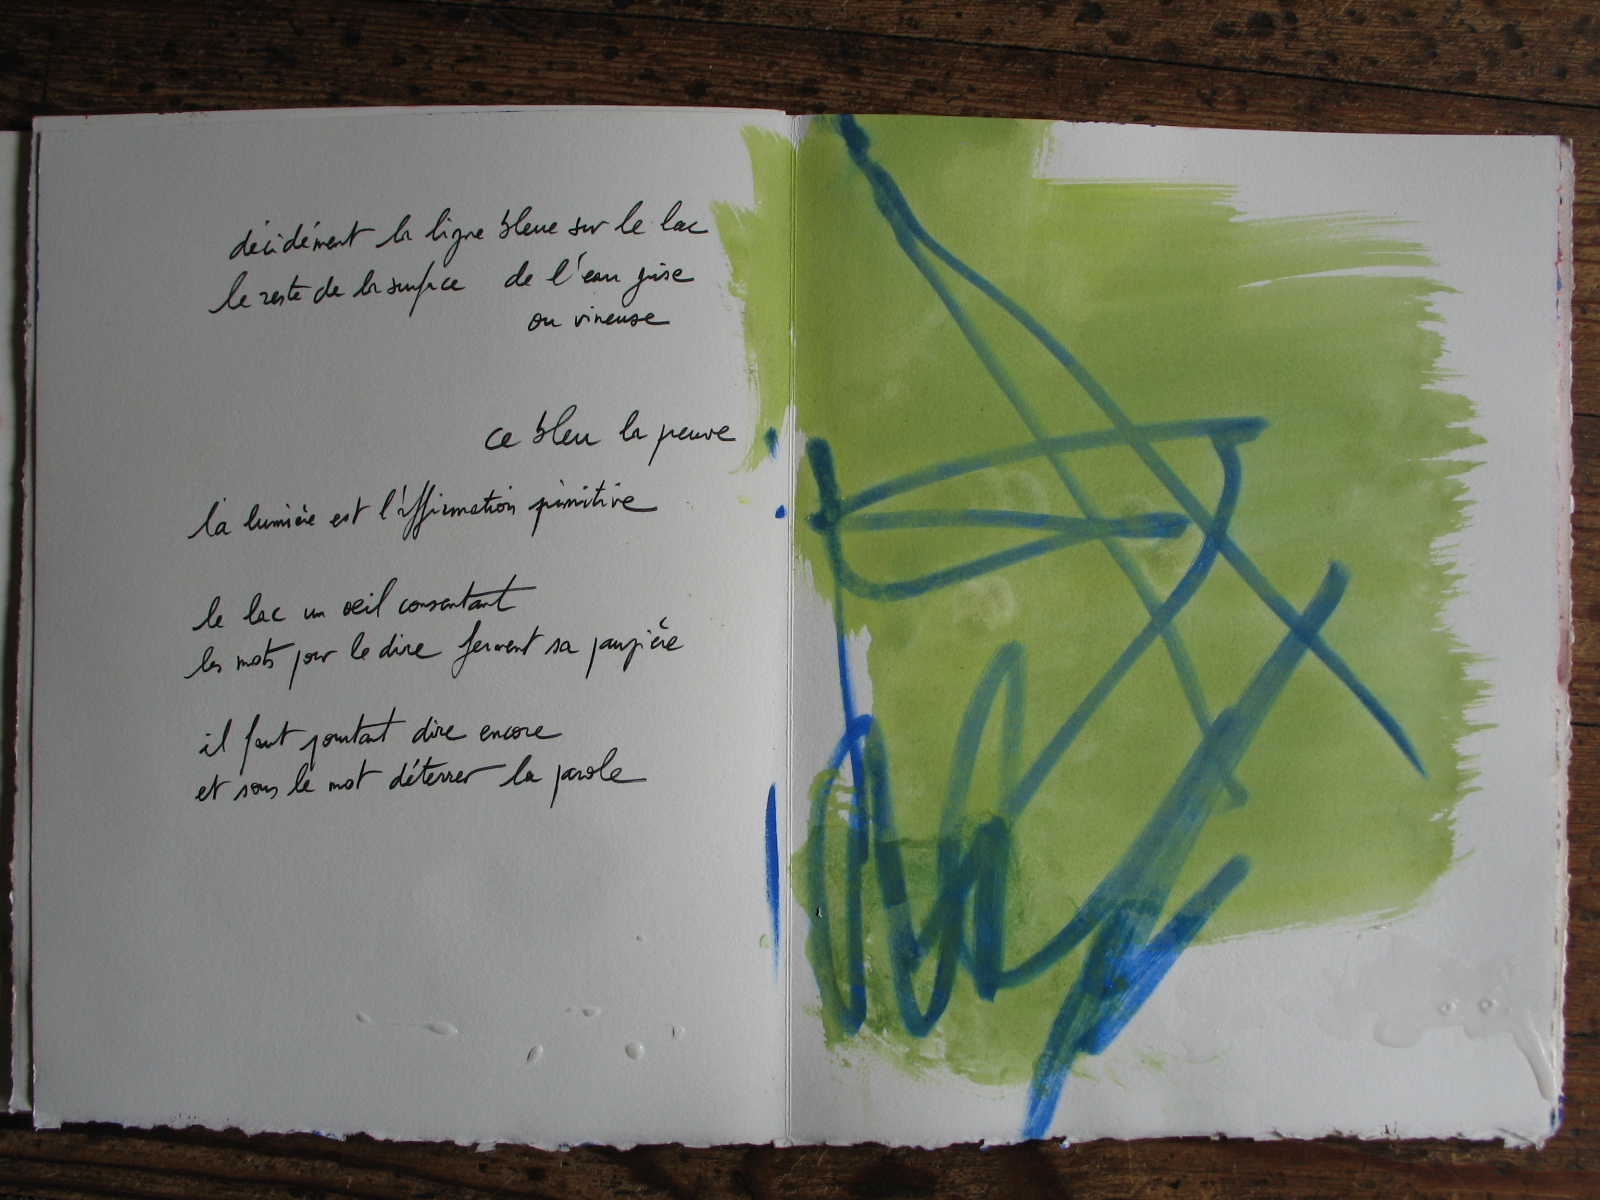 décidément la ligne bleue sur le lac
le reste de la surface de l'eau grise
ou vineuse
ce bleu la preuve
la lumière est l'affirmation primitive
le lac un oeil consentant
les mots pour le dire ferment sa paupière
il faut pourtant dire encore
et sous le mot déterrer la parole